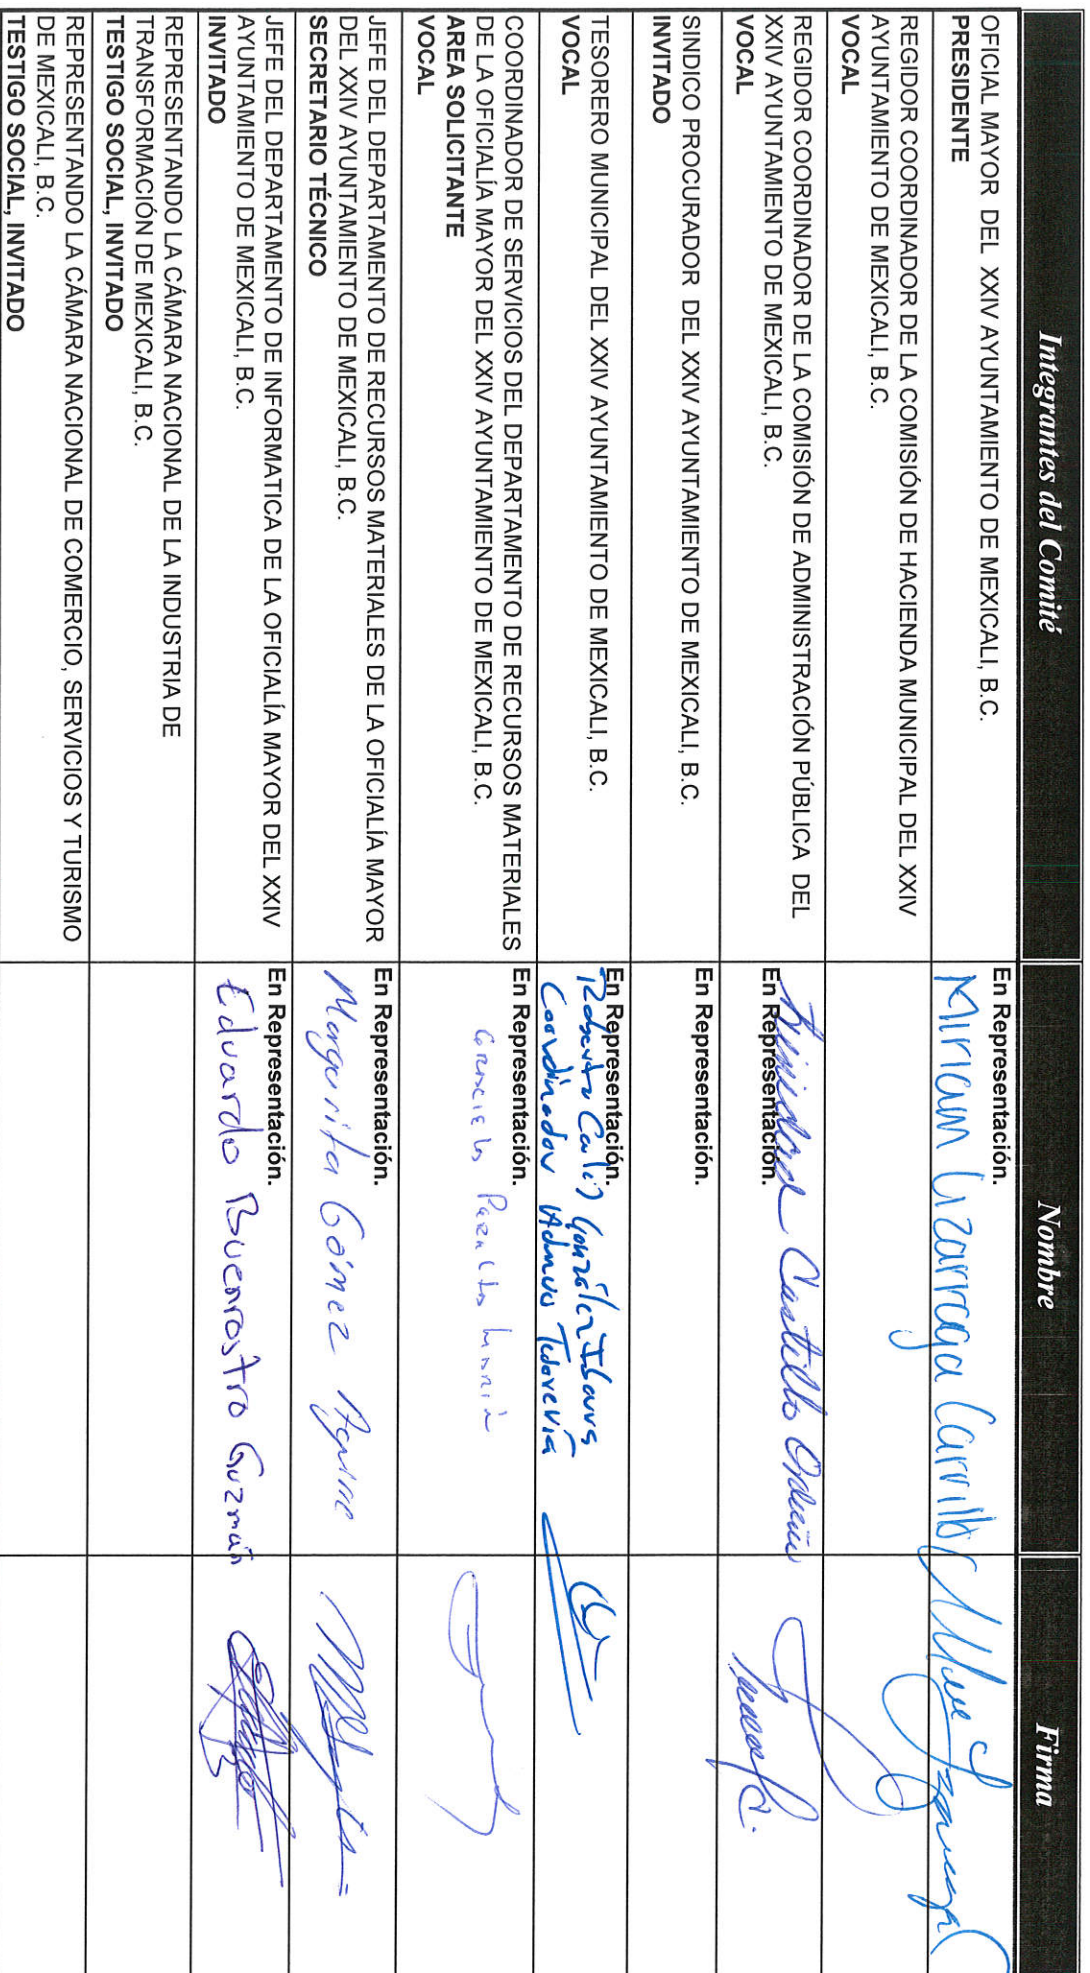 Integrantes del Comité
Nombre
Firma
OFICIAL MAYOR DEL XXIV AYUNTAMIENTO DE MEXICALI, B.C.
PRESIDENTE
En Representación.
Miriam Lizarraga Carrillo
REGIDOR COORDINADOR DE LA COMISIÓN DE HACIENDA MUNICIPAL DEL XXIV
AYUNTAMIENTO DE MEXICALI, B.C.
VOCAL
REGIDOR COORDINADOR DE LA COMISIÓN DE ADMINISTRACIÓN PÚBLICA DEL
XXIV AYUNTAMIENTO DE MEXICALI, B.C.
VOCAL
Castillo
En Representación.
SINDICO PROCURADOR DEL XXIV AYUNTAMIENTO DE MEXICALI, B.C.
INVITADO
En Representación.
TESORERO MUNICIPAL DEL XXIV AYUNTAMIENTO DE MEXICALI, B.C.
VOCAL
En Representación.
Roberto Carlos González Ibarra
Coordinador Admvo Tesorería
COORDINADOR DE SERVICIOS DEL DEPARTAMENTO DE RECURSOS MATERIALES
DE LA OFICIALÍA MAYOR DEL XXIV AYUNTAMIENTO DE MEXICALI, B.C.
AREA SOLICITANTE
VOCAL
En Representación.
JEFE DEL DEPARTAMENTO DE RECURSOS MATERIALES DE LA OFICIALÍA MAYOR
DEL XXIV AYUNTAMIENTO DE MEXICALI, B.C.
SECRETARIO TÉCNICO
En Representación.
Margarita Gómez Aguirre
JEFE DEL DEPARTAMENTO DE INFORMATICA DE LA OFICIALÍA MAYOR DEL XXIV
AYUNTAMIENTO DE MEXICALI, B.C.
INVITADO
En Representación.
Eduardo Buenrostro Guzmán
REPRESENTANDO LA CÁMARA NACIONAL DE LA INDUSTRIA DE
TRANSFORMACIÓN DE MEXICALI, B.C.
TESTIGO SOCIAL, INVITADO
REPRESENTANDO LA CÁMARA NACIONAL DE COMERCIO, SERVICIOS Y TURISMO
DE MEXICALI, B.C.
TESTIGO SOCIAL, INVITADO